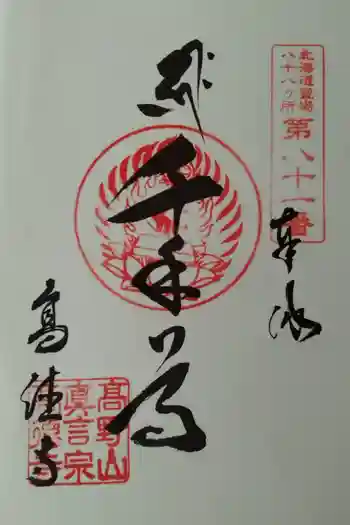 北海道霊場
八十八ヶ所
第八十一番
奉拝
千手尊
高徳寺
高野山
真言宗